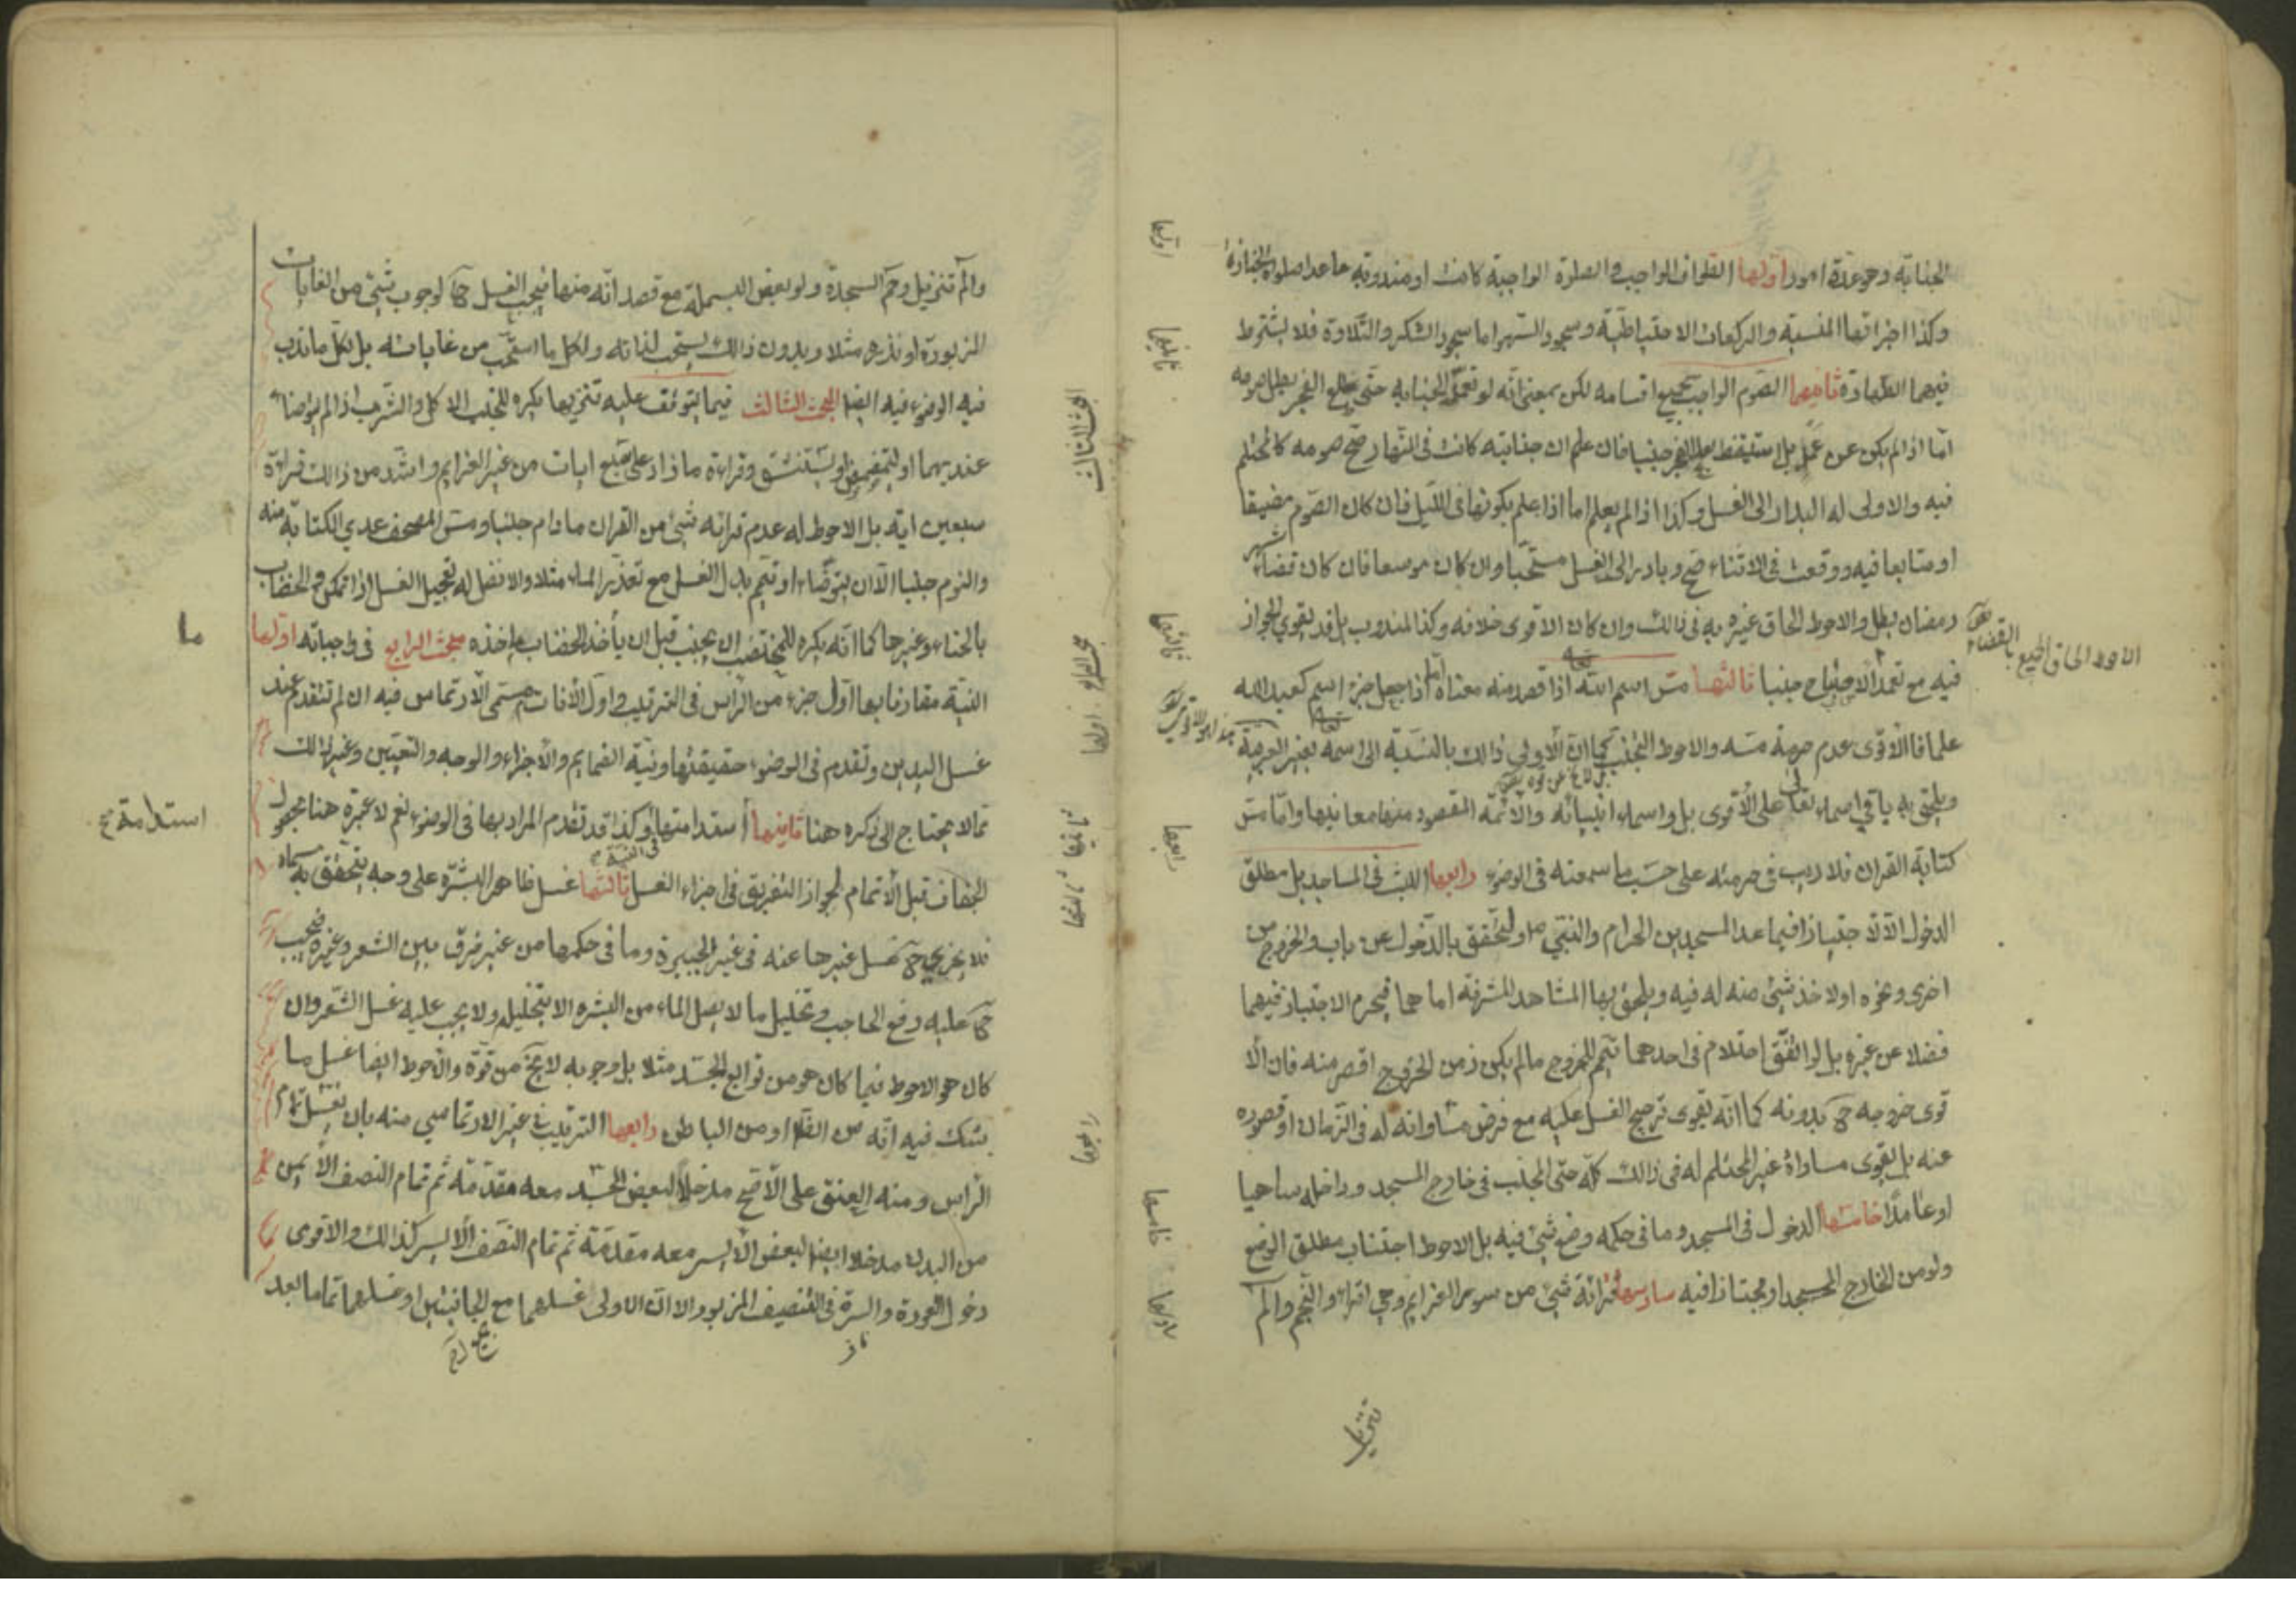 الجنابة وهو عدة امور اولها الطواف الواجب والصلوة الواجبة كانت او مندوبة ما عدا صلوة الجنازة
وكذا اجزائها المنسية والركعات الاحتياطية وسجود السهو اما سجود الشكر والتلاوة فلا يشترط
فيهما الطهارة ثانيها الصوم الواجب بجميع اقسامه لكن بمعنى انه لو تعمد الجنابة حتى يطلع الفجر بطل صومه
اما اذا لم يكن عن عمد بل استيقظ بعد الفجر جنبا فان علم ان جنابته كانت في النهار صح صومه كالمحتلم
فيه والاولى له البدار الى الغسل وكذا اذا لم يعلم اما اذا علم بكونها في الليل فان كان الصوم مضيقا
او متابعا فيه ووقعت في الاثناء صح وبادر الى الغسل مستحبا وان كان موسعا فان كان قضاء شهر
رمضان بطل والاحوط الحاق غيره به في ذالك وان كان الاقوى خلافه وكذا المندوب بل قد يقوى الجواز
فيه مع تعمد الاصباح جنبا ثالثها مس اسم الله تعالى اذا قصد منه معناه اما اذا جعل جزء اسم كعبد الله
علما فالاقوى عدم حرمة مسه والاحوط التجنب كما ان الاولى ذالك بالنسبة الى اسمه تعالى بغير العربية
ويلحق به باقي اسماء تعالى على الاقوى بل واسماء انبيائه والائمة المقصود منها معانيها واما مس
كتابة القران فلا ريب في حرمته على حسب ما سمعته في الوضوء رابعها اللبث في المساجد بل مطلق
الدخول الا اجتيازا فيما عدا المسجدين الحرام والنبي ص ويتحقق بالدخول من باب والخروج من
اخرى ونحوه او لاخذ شيئ منه له فيه ويلحق بها المشاهد المشرفة اما هما فيحرم الاجتياز فيهما
فضلا عن غيره بل لو اتفق احتلام في احدهما تيمم للخروج ما لم يكن زمن الخروج اقصر منه فان الا
قوى خروجه ح بدونه كما انه يقوى ترجيح الغسل عليه مع فرض مساواته له في الزمان او قصوره
عنه بل يقوى مساواة غير المحتلم له في ذالك كله حتى المجنب في خارج المسجد وداخله ساهيا
او عامدا خامسها الدخول في المسجد وما في حكمه وضع شيئ فيه بل الاحوط اجتناب مطلق الوضع
ولو من الخارج المسجد او مجتازا فيه سادسها قرائة شيئ من سور العزايم وهي اقراء والنجم والم
تنزيل
الاحوط الحاق الجميع بالقضاء
اولها
ثانيها
ثالثها
رابعها
خامسها
سادسها
والم تنزيل وحم السجدة ولو بعض البسملة مع قصد انه منها فيجب الغسل ح لوجوب شيئ من الغايات
المزبورة او نذره مثلا وبدون ذالك يستحب لذاته ولكل ما استحب من غاياته بل لكل ما ندب
فيه الوضوء فيه ايضا المبحث الثالث فيما يتوقف عليه تنزيها يكره للجنب الاكل والشرب اذا لم يتوضاء
عنديهما او يتمضمض او يستنشق وقراءة ما زاد على سبع ايات من غير العزايم واشد من ذالك قراءة
سبعين اية بل الاحوط له عدم قرائة شيئ من القران ما دام جنبا ومس المصحف عدي الكتابة منه
والنوم جنبا الا ان يتوضاء او تيمم بدل الغسل مع تعذر الماء مثلا والافضل له تعجيل الغسل اذا تمكن والخضاب
بالحناء وغيرها كما انه يكره للمختضب ان يجنب قبل ان يأخذ الخضاب ماخذه مبحث الرابع في واجباته اولها
النية مقارنا بها اول جزء من الراس في الترتيب واول الانات مسمى الارتماس فيه ان لم تتقدم عند
غسل اليدين وتقدم في الوضوء حقيقتها ونية الضمايم والاجزاء والوجه والتعيين وغير ذالك
مما لا يحتاج الى ذكره هنا ثانيها استدامتها وكذا قد تقدم المراد بها في الوضوء نعم لا عبرة هنا بحصول
الجفاف قبل الاتمام لجواز التفريق في اجزاء الغسل ثالثها غسل ظاهر البشرة على وجه يتحقق به مسماه
فلا يجزي ح غسل غيرها عنه في غير الجبيرة وما في حكمها من غير فرق بين الشعر وغيره فيجب
ح عليه رفع الحاجب وتخليل ما لا يصل الماء من البشره الا بتخليله ولا يجب عليه غسل الشعر وان
كان هو الاحوط فيما كان هو من توابع الجسد مثلا بل وجوبه لا يخ من قوة والاحوط ايضا غسل ما
يشك فيه انه من الظاهر او من الباطن رابعها الترتيب في غير الارتماسي منه بان يغسل تمام
الراس ومنه العنق على الاصح مدخلا لبعض الجسد معه مقدمة ثم تمام النصف الايمن
من البدن مدخلا ايضا لبعض الايسر معه مقدمة ثم تمام النصف الايسر كذالك والاقوى
دخول العورة والسرة في التنصيف المزبور الا ان الاولى غسلهما مع الجانبين او غسلهما تماما بعد
المبحث الثالث
اولها
ثانيها
ثالثها
رابعها
استدامة